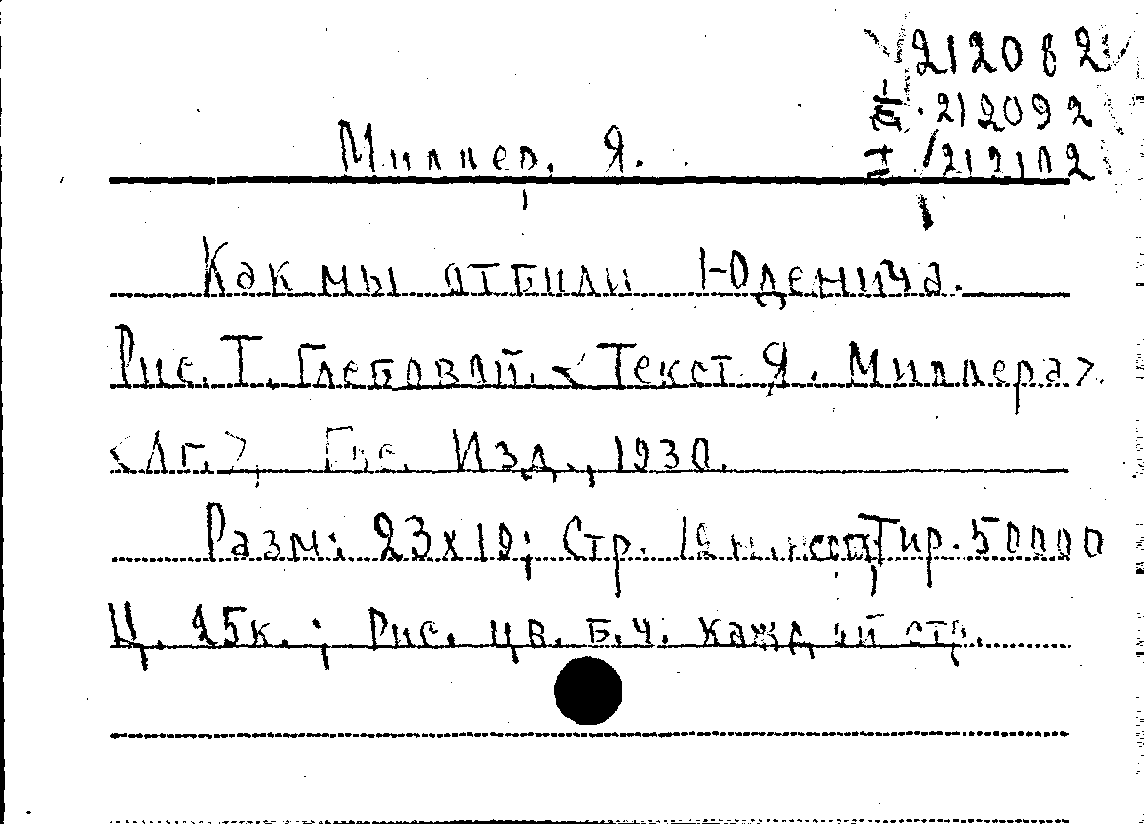 212082
212092
212102
Миллер, Я.
Как мы отбили Юденича.
Рис. Т. Глебовой. <Текст Я. Миллера>
<Лг.>, Гос. Изд., 1930.
Разм: 23х19; Стр. 12 н. Тир. 50000
Ц. 25к.; Рис. цв. б.ч. кажд ой стр.